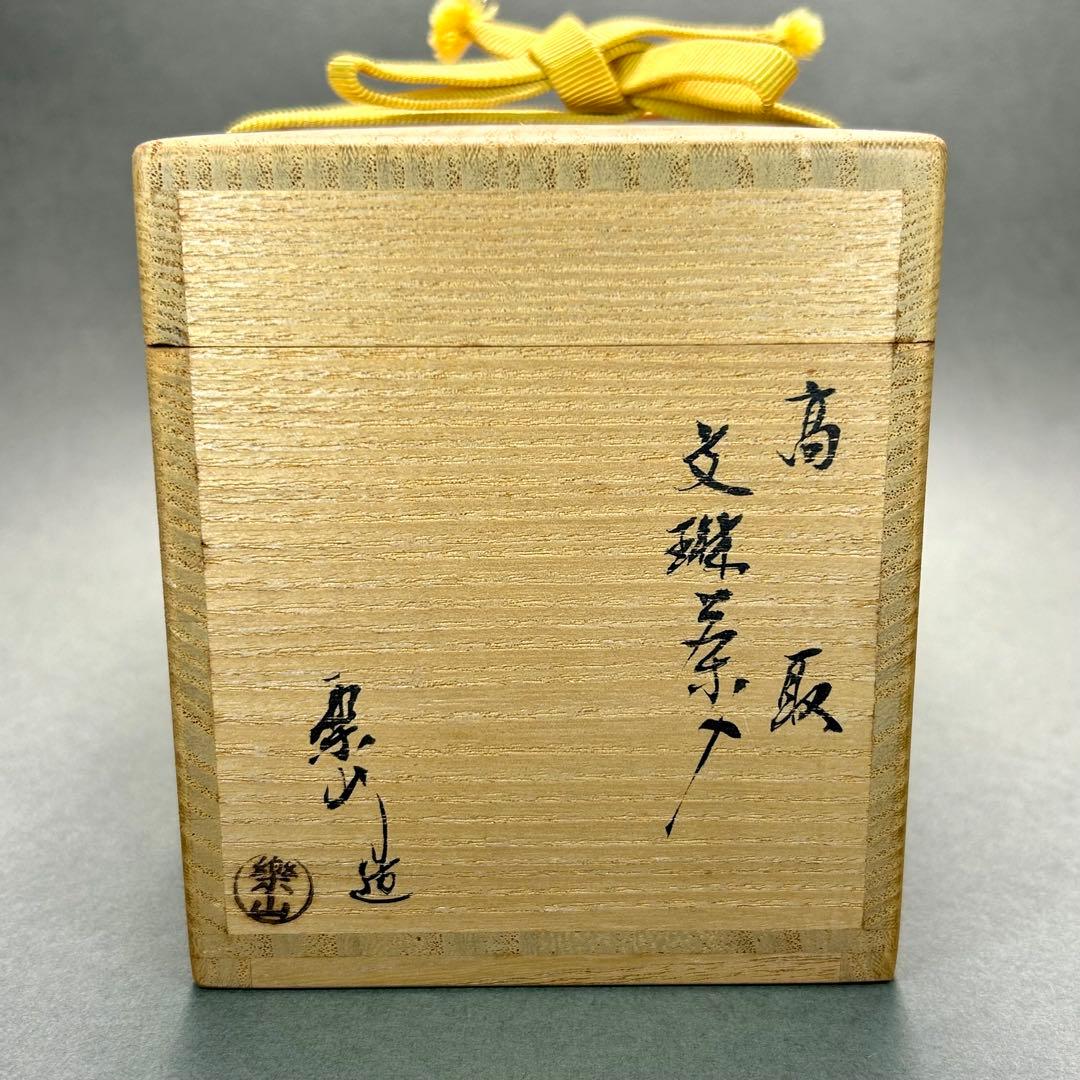 高取
文琳茶入
楽山造
樂山